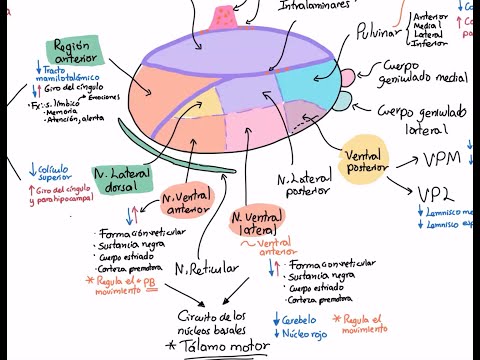 Intralaminares
Pulvinar
Anterior
Medial
Lateral
Inferior
Región
anterior
Tracto
mamilotalámico
Giro del cíngulo
Fx: s. límbico
Emociones
- Memoria
- Atención, alerta
Cuerpo
geniculado medial
Cuerpo geniculado
lateral
Colículo
superior
Giro del cíngulo
y parahipocampal
N. Lateral
dorsal
N. Ventral
anterior
N. Ventral
lateral
~ Ventral
anterior
N. Lateral
posterior
Ventral
posterior
VPM
VPL
Lemnisco
Lemnisco
• Formación reticular
• Sustancia negra
• Cuerpo estriado
• Corteza premotora
* Regula el
movimiento
N. Reticular
• Formación reticular
• Sustancia negra
• Cuerpo estriado
• Corteza premotora
Circuito de los
núcleos basales
* Tálamo motor
Cerebelo
Núcleo rojo
* Regula el
movimiento